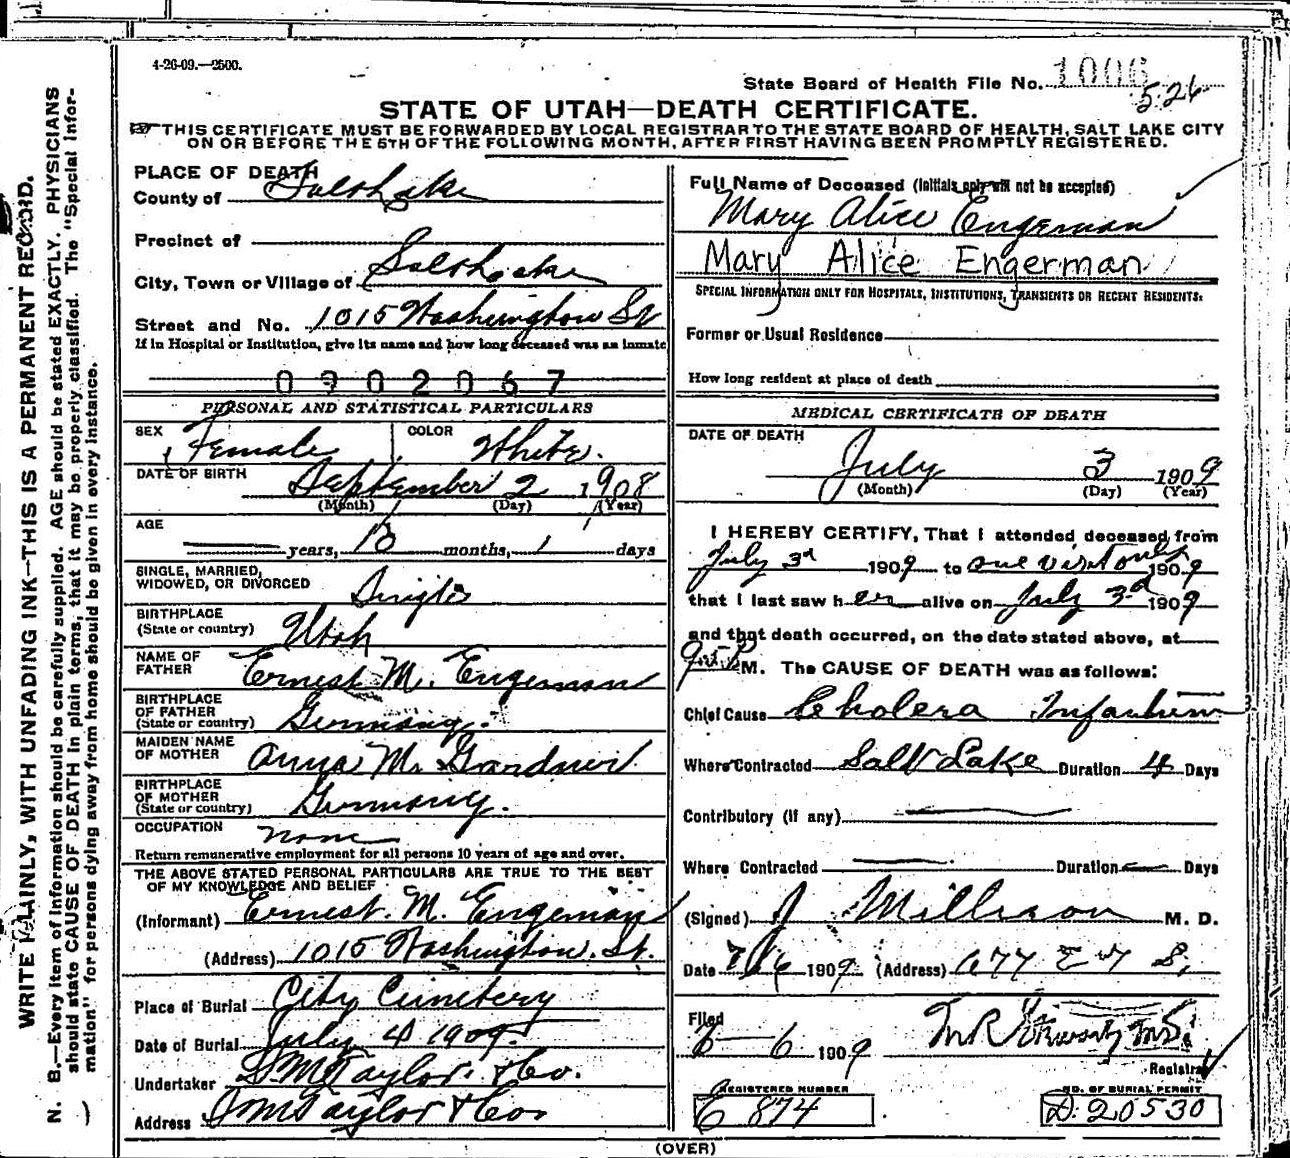 4-26-09.—2500.
State Board of Health File No. 1006
526
STATE OF UTAH—DEATH CERTIFICATE.
THIS CERTIFICATE MUST BE FORWARDED BY LOCAL REGISTRAR TO THE STATE BOARD OF HEALTH, SALT LAKE CITY
ON OR BEFORE THE 5TH OF THE FOLLOWING MONTH, AFTER FIRST HAVING BEEN PROMPTLY REGISTERED.
WRITE PLAINLY, WITH UNFADING INK—THIS IS A PERMANENT RECORD.
N. B.—Every item of information should be carefully supplied. AGE should be stated EXACTLY. PHYSICIANS
should state CAUSE OF DEATH in plain terms, that it may be properly classified. The "Special Infor-
mation" for persons dying away from home should be given in every instance.
PLACE OF DEATH
County of Salt Lake
Precinct of
City, Town or Village of Salt Lake
Street and No. 1015 Washington St
If in Hospital or Institution, give its name and how long deceased was an inmate
0902067
PERSONAL AND STATISTICAL PARTICULARS
SEX Female COLOR White.
DATE OF BIRTH September 2 1908
(Month) (Day) (Year)
AGE
years, 10 months, 1 days
SINGLE, MARRIED,
WIDOWED, OR DIVORCED Single
BIRTHPLACE
(State or country) Utah
NAME OF
FATHER Ernest M. Engeman
BIRTHPLACE
OF FATHER
(State or country) Germany.
MAIDEN NAME
OF MOTHER Anna M. Gardner
BIRTHPLACE
OF MOTHER
(State or country) Germany.
OCCUPATION none
Return remunerative employment for all persons 10 years of age and over.
THE ABOVE STATED PERSONAL PARTICULARS ARE TRUE TO THE BEST
OF MY KNOWLEDGE AND BELIEF
(Informant) Ernest. M. Engeman
(Address) 1015 Washington. St.
Place of Burial City Cemetery
Date of Burial July 4 1909.
Undertaker S.M. Taylor. & Co.
Address S.M. Taylor & Co.
Full Name of Deceased (Initials only will not be accepted)
Mary Alice Engerman
Mary Alice Engerman
SPECIAL INFORMATION ONLY FOR HOSPITALS, INSTITUTIONS, TRANSIENTS OR RECENT RESIDENTS:
Former or Usual Residence
How long resident at place of death
MEDICAL CERTIFICATE OF DEATH
DATE OF DEATH
July 3 1909
(Month) (Day) (Year)
I HEREBY CERTIFY, That I attended deceased from
July 3d 1909 to one visit only 1909
that I last saw her alive on July 3d 1909
and that death occurred, on the date stated above, at
P M. The CAUSE OF DEATH was as follows:
Chief Cause Cholera Infantum
Where Contracted Salt Lake Duration 4 Days
Contributory (if any)
Where Contracted Duration Days
(Signed) J Millison M. D.
Date 1909 (Address) 677 E 7 S.
Filed
6 1909
Registrar
REGISTERED NUMBER
C 874
NO. OF BURIAL PERMIT
D. 20530
(OVER)